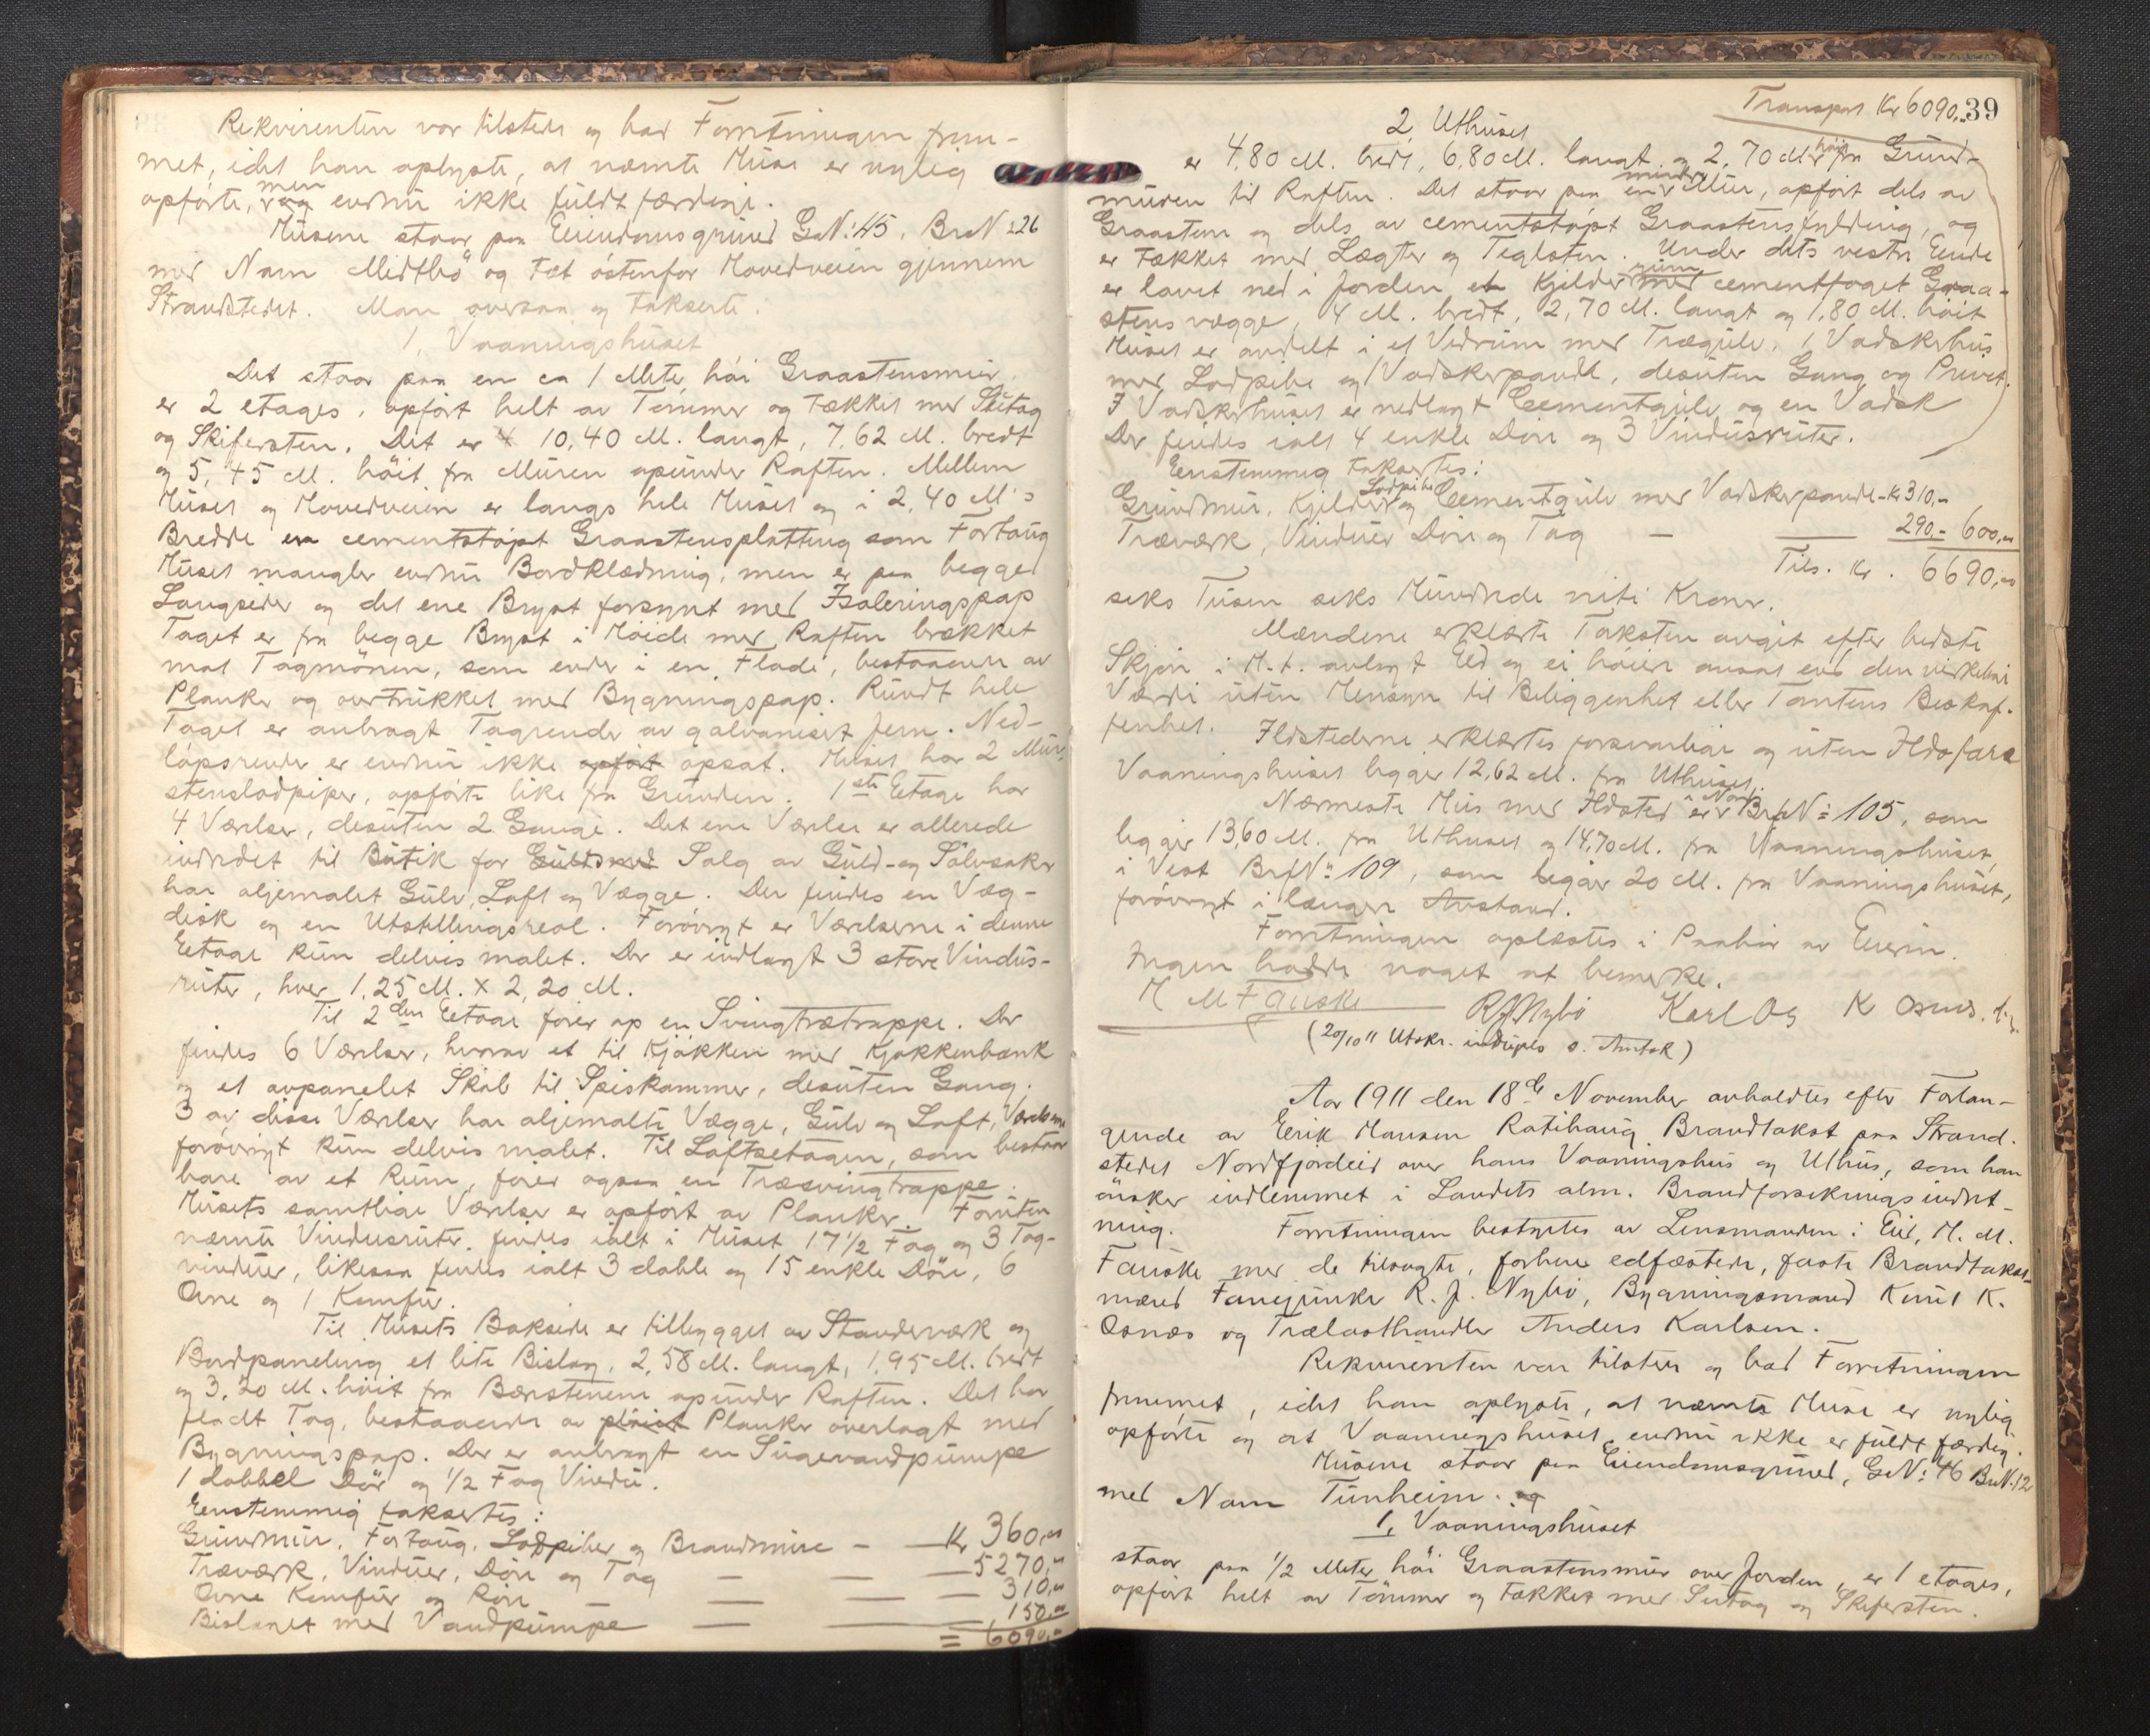 Rekvirenten var tilstede og bad Forretningen frem-
met, idet han oplyste, at næmte Huse er nylig
opførte, men endnu ikke fuldt færdige.
Husene staar paa Eiendomsgrund G.N: 45, Br.N: 226
med Navn Midtbø og tæt østenfor Hovedveien gjennem
Strandstedet. Man oversaa og takserte:
1, Vaaningshuset
Det staar paa en ca 1 Meter høi Graastensmur,
er 2 etages, opført helt av Tømmer og tækket med Sutag
og Skifersten. Det er 10,40 M. langt, 7,62 M. bredt
og 5,45 M. høit fra Muren opunder Raften. Mellem
Huset og Hovedveien er langs hele Huset og i 2,40 M's
Bredde en cementstøpt Graastensplatting som Fortaug
Huset mangler endnu Bordklædning, men er paa begge
Langsider og det ene Bryst forsynt med Isoleringspap
Taget er fra begge Bryst i Høide med Raften brækket
mot Tagmønen, som ender i en Flade, bestaaende av
Planker og overtrukket med Bygningspap. Rundt hele
Taget er anbragt Tagrender av galvanisert Jern. Ned-
løpsrender er endnu ikke opført opsat. Huset har 2 Mur-
stenslodpiper, opførte like fra Grunden. 1ste Etage har
4 Værelser, desuten 2 Gange. Det ene Værelse er allerede
indredet til Butik for Guldsmed Salg av Guld- og Sølvsaker
har oljemalet Gulv, Loft og Vægge. Der findes en Væg-
disk og en Utstillingsreol. Forøvrigt er Værelserne i denne
Etage kun delvis malet. Der er indlagt 3 store Vindus-
ruter, hver 1,25 M. x 2,20 M.
Til 2den Etage fører op en Svingtrætrappe. Der
findes 6 Værelser, hvorav et til Kjøkken med Kjøkkenbænk
og et avpanelet Skab til Spiskammer, desuten Gang.
3 av disse Værelser har oljemalte Vægge, Gulv og Loft, Værelserne
forøvrigt kun delvis malet. Til Loftsetagen, som bestaar
bare av et Rum, fører ogsaa en Træsvingtrappe.
Husets samtlige Værelser er opført av Planker. Foruten
næmte Vindusruter findes ialt i Huset 17 1/2 Fag og 3 Tag-
vinduer, likesaa findes ialt 3 doble og 15 enkle Døre, 6
Ovne og 1 Komfur.
Til Husets Bakside er tilbygget av Stenderværk og
Bordpaneling et lite Bislag, 2,58 M. langt, 1,95 M. bredt
og 3,20 M. høit fra Bærestenene opunder Raften. Det har
fladt Tag, bestaaende av Planker overlagt med
Bygningspap. Der er anbragt en Sugevandpumpe
1 dobbel Dør og 1/2 Fag Vindu.
Eenstemmig taksertes:
Grundmur, Fortaug, Lodpiber og Brandmure - Kr 360,00
Træværk, Vinduer, Døre og Tag — — — 5270,00
Ovne Komfur og Rør — — — 310,00
Bislaget med Vandpumpe — — 150,00
= 6090,00
Transport Kr 6090,- 39
2, Uthuset
er 4,80 M. bredt, 6,80 M. langt og 2,70 M. høit fra Grund-
muren til Raften. Det staar paa en mindre Mur, opført dels av
Graasten og dels av cementstøpt Graastensfylding, og
er tækket med Lægter og Teglsten. Under dets vestre Ende
er lavet ned i Jorden et Kjelderrum med cementfoget Graa-
stens vægge, 4 M. bredt, 2,70 M. langt og 1,80 M. høit
Huset er avdelt i et Vedrum med Trægulv, 1 Vadskehus
med Lodpibe og 1 Vadskerpande, desuten Gang og Privet.
I Vadskehuset er nedlagt Cementgulv og en Vadsk
Der findes ialt 4 enkle Døre og 3 Vindusruter.
Eenstemmig taksertes:
Grundmur, Kjelder Lodpibe og Cementgulv med Vadskerpande - Kr 310,-
Træværk, Vinduer Døre og Tag — — 290,- 600,00
Tils. Kr. 6690,00
seks Tusen seks Hundrede niti Kroner.
Mændene erklærte Taksten avgit efter bedste
Skjøn i H. t. avlagt Eed og ei høiere ansat end den virkelige
Værdi uten Hensyn til Beliggenhet eller Tomtens Beskaf-
fenhet. Ildstederne erklærtes forsvarlige og uten Ildsfare
Vaaningshuset ligger 12,62 M. fra Uthuset.
Nærmeste Hus med Ildsted er i Nord BrfN: 105, som
ligger 13,60 M. fra Uthuset og 14,70 M. fra Vaaningshuset,
i Vest BrfN: 109, som ligger 20 M. fra Vaaningshuset,
forøvrigt i længere Avstand.
Forretningen oplæstes i Paahør av Eieren.
Ingen hadde noget at bemerke.
H M Fauske R J Nybø Karl Os K Osnes.
(20/10 11 Utskr. indsendes o. Amtsk)
Aar 1911 den 18de November avholdtes efter Forlan-
gende av Eerik Hansen Ratihaug Brandtakst paa Strand-
stedet Nordfjordeid over hans Vaaningshus og Uthus, som han
ønsker indlemmet i Landets alm. Brandforsikringsindret-
ning. Forretningen bestyrtes av Lensmanden i Eid, H. M.
Fauske med de tilsagte, forhen edfæstede, faste Brandtakst-
mænd Fanejunker R. J. Nybø, Bygningsmand Knut K.
Osnæs og Trælasthandler Anders Karlsen.
Rekvirenten var tilstede og bad Forretningen
fremmet, idet han oplyste, at næmte Huse er nylig
opførte og at Vaaningshuset endnu ikke er fuldt færdig.
Husene staar paa Eiendomsgrund, G.N: 46 Br.N. 12
med Navn Tunheim. og
1, Vaaningshuset
staar paa 1/2 Meter høi Graastensmur over Jorden, er 1 etages,
opført helt av Tømmer og tækket med Sutag og Skifersten.